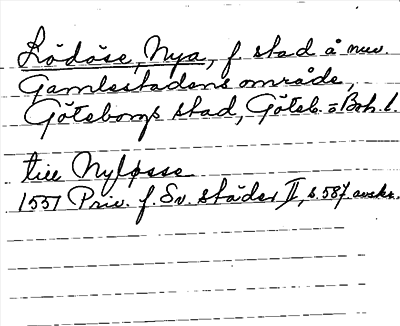 Lödöse, Nya, f. stad å nuv.
Gamlestadens område,
Göteborgs stad, Göteb. o Boh. l.
till Nyløsse
1551 Priv. f. Sv. städer II, s. 587 avskr.